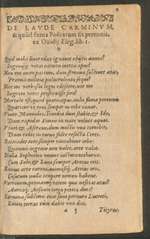 DE LAVDE CARMINVM,
& quod fama Poëtarum sit perennis,
ex Ouidij Eleg. lib. 1.
Quid mihi liuor edax ignauos obijcis annos?
Ingenijq; vocas carmen inertis opus?
Non me more patrum, dum strenua sustinet aetas,
Praemia militiae puluerulenta sequi?
Nec me verbosas leges ediscere, nec me
Ingrato vocem prostituisse foro?
Mortale est quod quaeris opus, mihi fama perennis
Quaeritur, vt toto semper in orbe canar.
Viuet Maeonides, Tenedos dum stabit, & Ide,
Dum rapidas Simois in mare voluet aquas.
Viuet & Ascraeus, dum mustis vua tumebit,
Dum cadet incurua falce resecta Ceres.
Battiades toto semper cantabitur orbe:
Quamuis ingenio non valet, arte valet.
Nulla Sophocleo veniet iactura cothurno:
Cum Sole & Luna semper Aratus erit.
Ennius arte carens, animosiq; Accius oris,
Casurum nullo tempore nomen habent.
Varronem primamq; ratem quae nesciet aetas?
Aureaq; Aesonio terga petita duci?
Carmina sublimis tunc sunt peritura Lucreti,
Exitio terras cùm dabit vna dies.
Tityrus